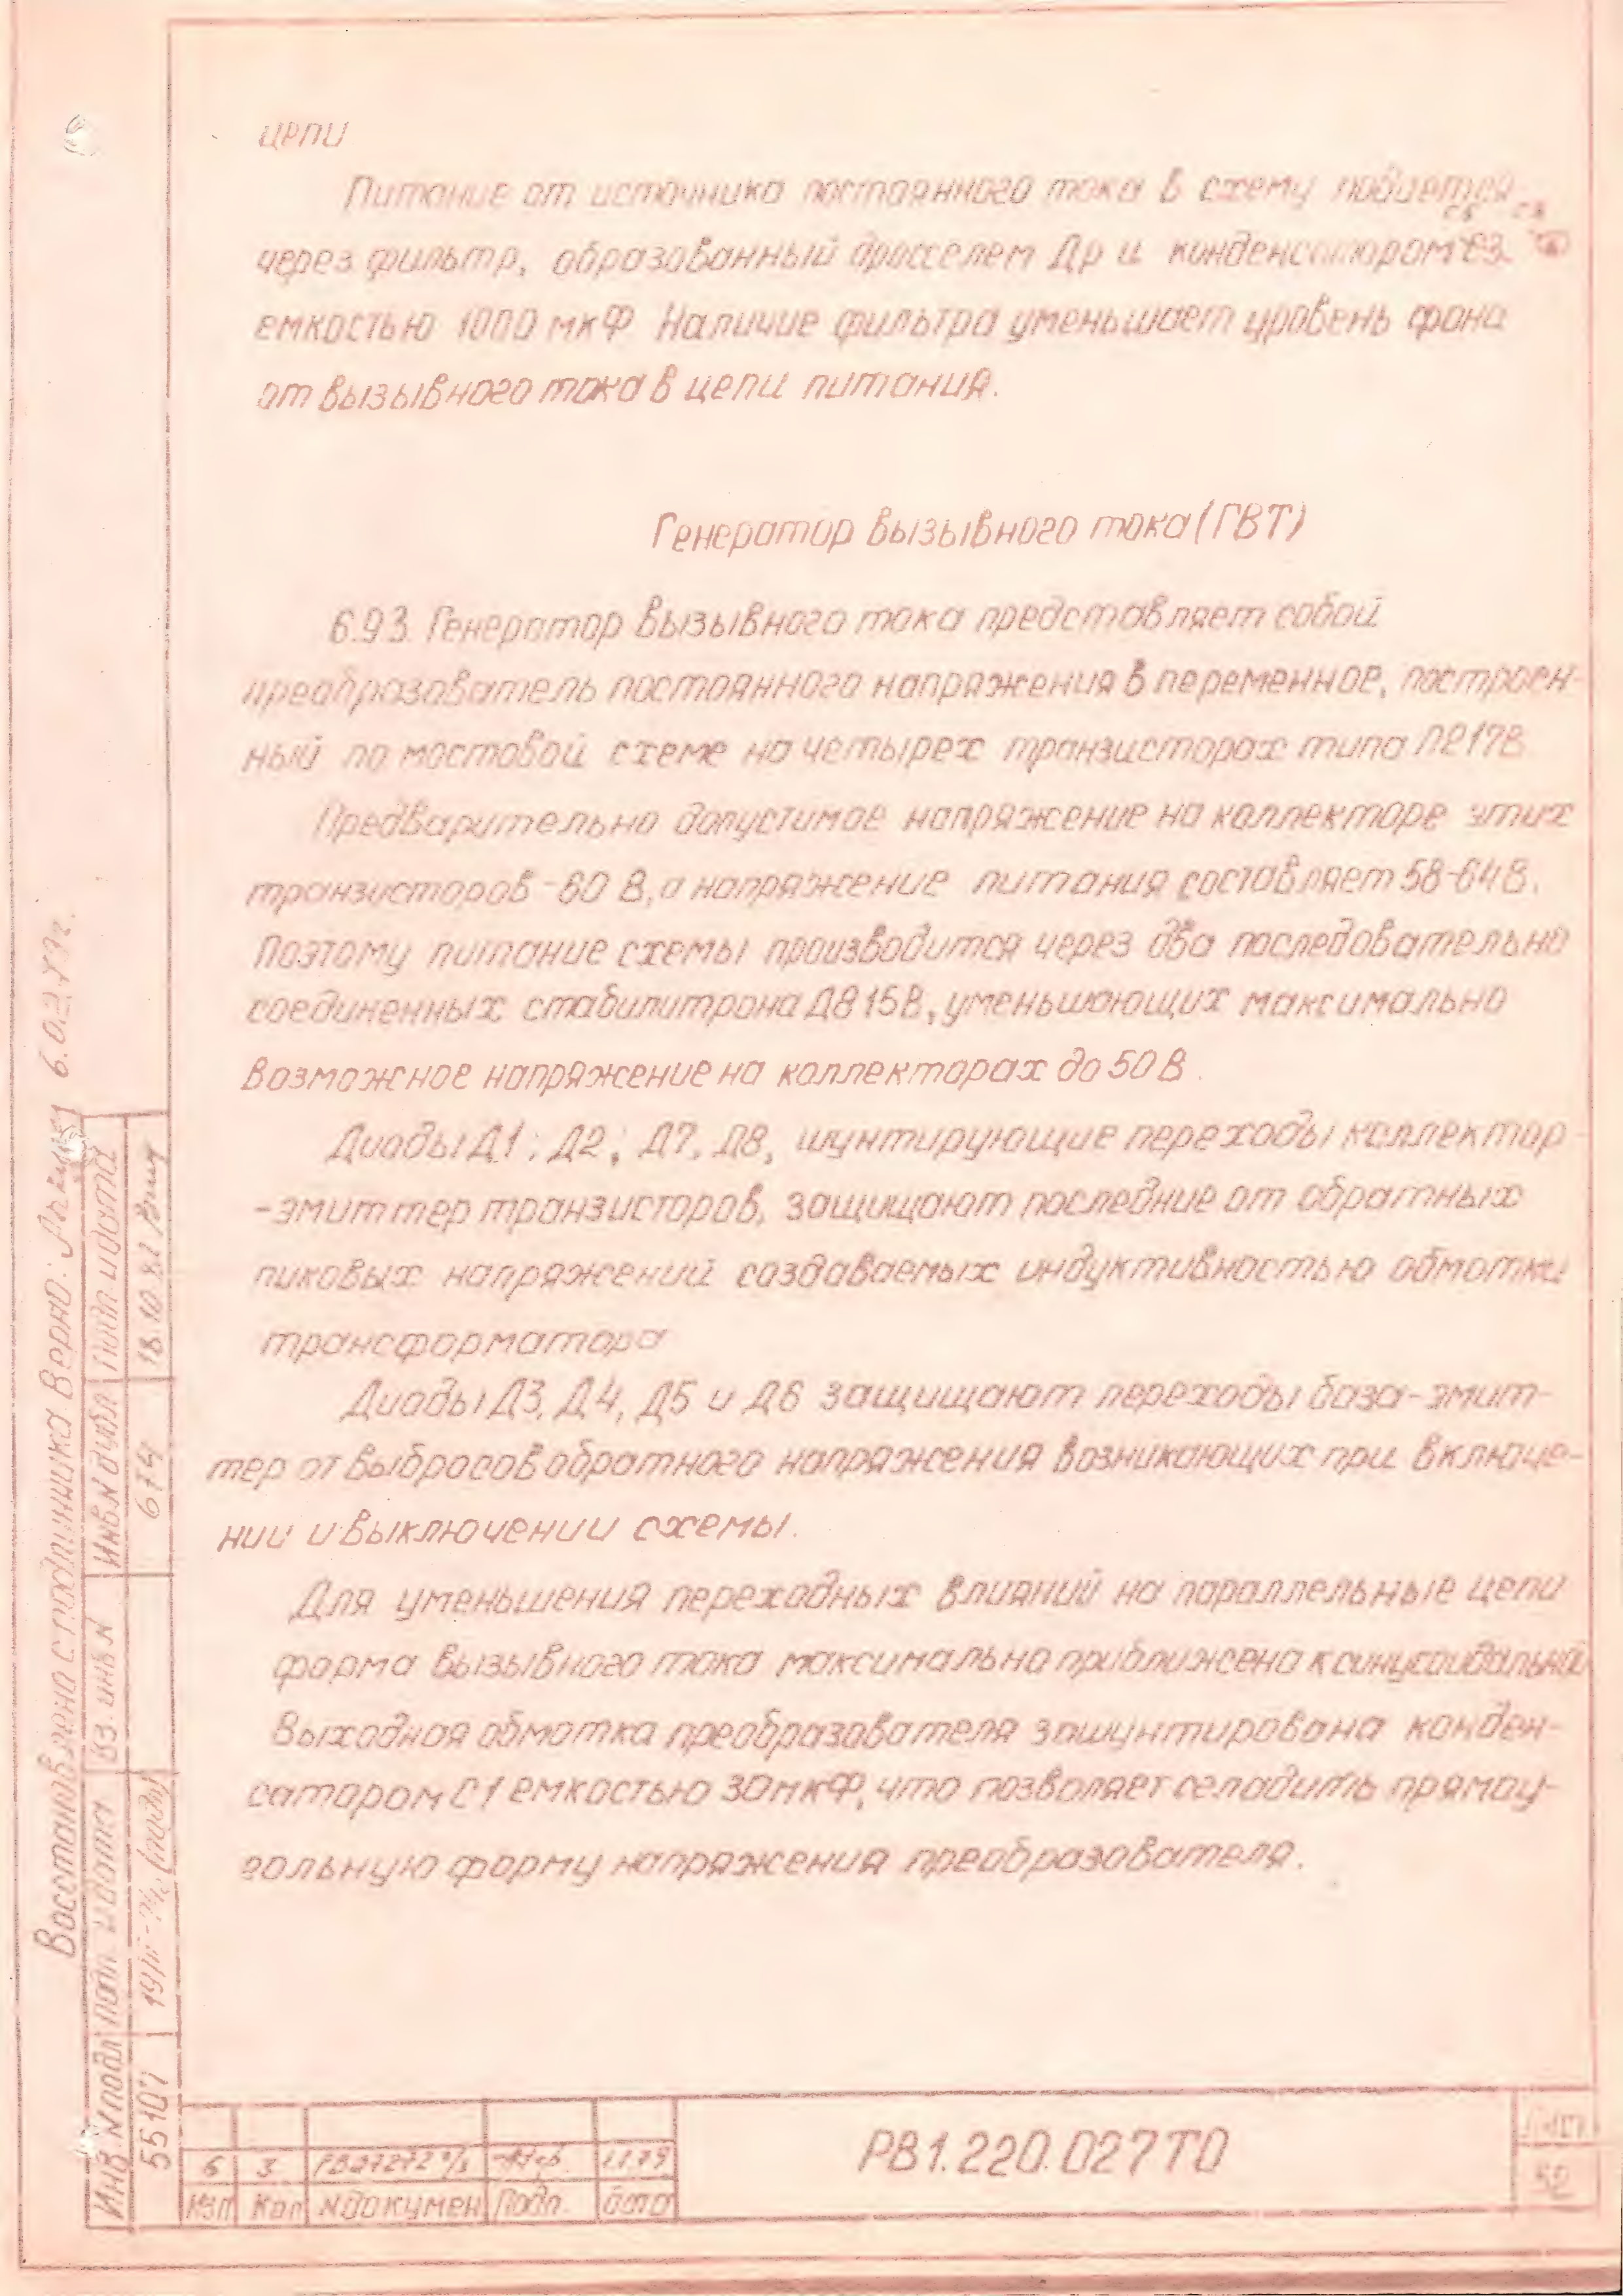 цепи
Питание от источника постоянного тока в схему подается
через фильтр, образованный дросселем Др и конденсатором С3
емкостью 1000 мкФ Наличие фильтра уменьшает уровень фона
от вызывного тока в цепи питания.
Генератор вызывного тока (ГВТ)
6.93. Генератор вызывного тока представляет собой
преобразователь постоянного напряжения в переменное, построен-
ный по мостовой схеме на четырех транзисторах типа П217В
Предварительно допустимое напряжение на коллекторе этих
транзисторов -60 В, а напряжение питания составляет 58-64В.
Поэтому питание схемы производится через два последовательно
соединенных стабилитрона Д815В, уменьшающих максимально
возможное напряжение на коллекторах до 50 В.
Диоды Д1; Д2; Д7, Д8, шунтирующие переходы коллектор-
-эмиттер транзисторов, защищают последние от обратных
пиковых напряжений создаваемых индуктивностью обмотки
трансформатора
Диоды Д3, Д4, Д5 и Д6 защищают переходы база-эмит-
тер от выбросов обратного напряжения возникающих при включе-
нии и выключении схемы.
Для уменьшения переходных влияний на параллельные цепи
форма вызывного тока максимально приближена к синусоидальной
Выходная обмотка преобразователя зашунтирована конден-
сатором С1 емкостью 30мкФ, что позволяет сгладить прямоу-
гольную форму напряжения преобразователя.
Восстановлена с подлинника Верно: 6.03.79г.
Инв. N подл подп. и дата вз. инв N Инв.N дубл Подп и дата
55107 674 18.10.82
6 3 11.79
Изп Кол N докумен Подп. Дата
РВ1.220.027ТО
Лист
52